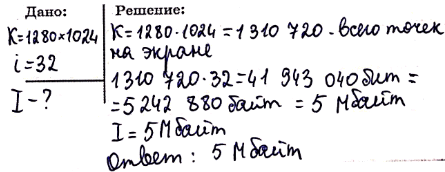 Дано:
K=1280×1024
i=32
I-?
Решение:
K=1280·1024=1310 720-всего точек
на экране
1310 720·32=41 943 040бит =
=5 242 880 байт = 5 Мбайт
I=5Мбайт
Ответ: 5 Мбайт